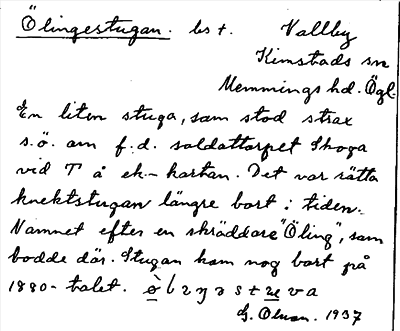 Ölingestugan. bs t. Vallby
Kimstads sn
Memmings hd. Ögl.
En liten stuga, som stod strax
s.ö. om f.d. soldattorpet Skoga
vid T å ek-kartan. Det var rätta
knektstugan längre bort i tiden.
Namnet efter en skräddare "Öling", som
bodde där. Stugan kom nog bort på
1880-talet.
G. Olson. 1937